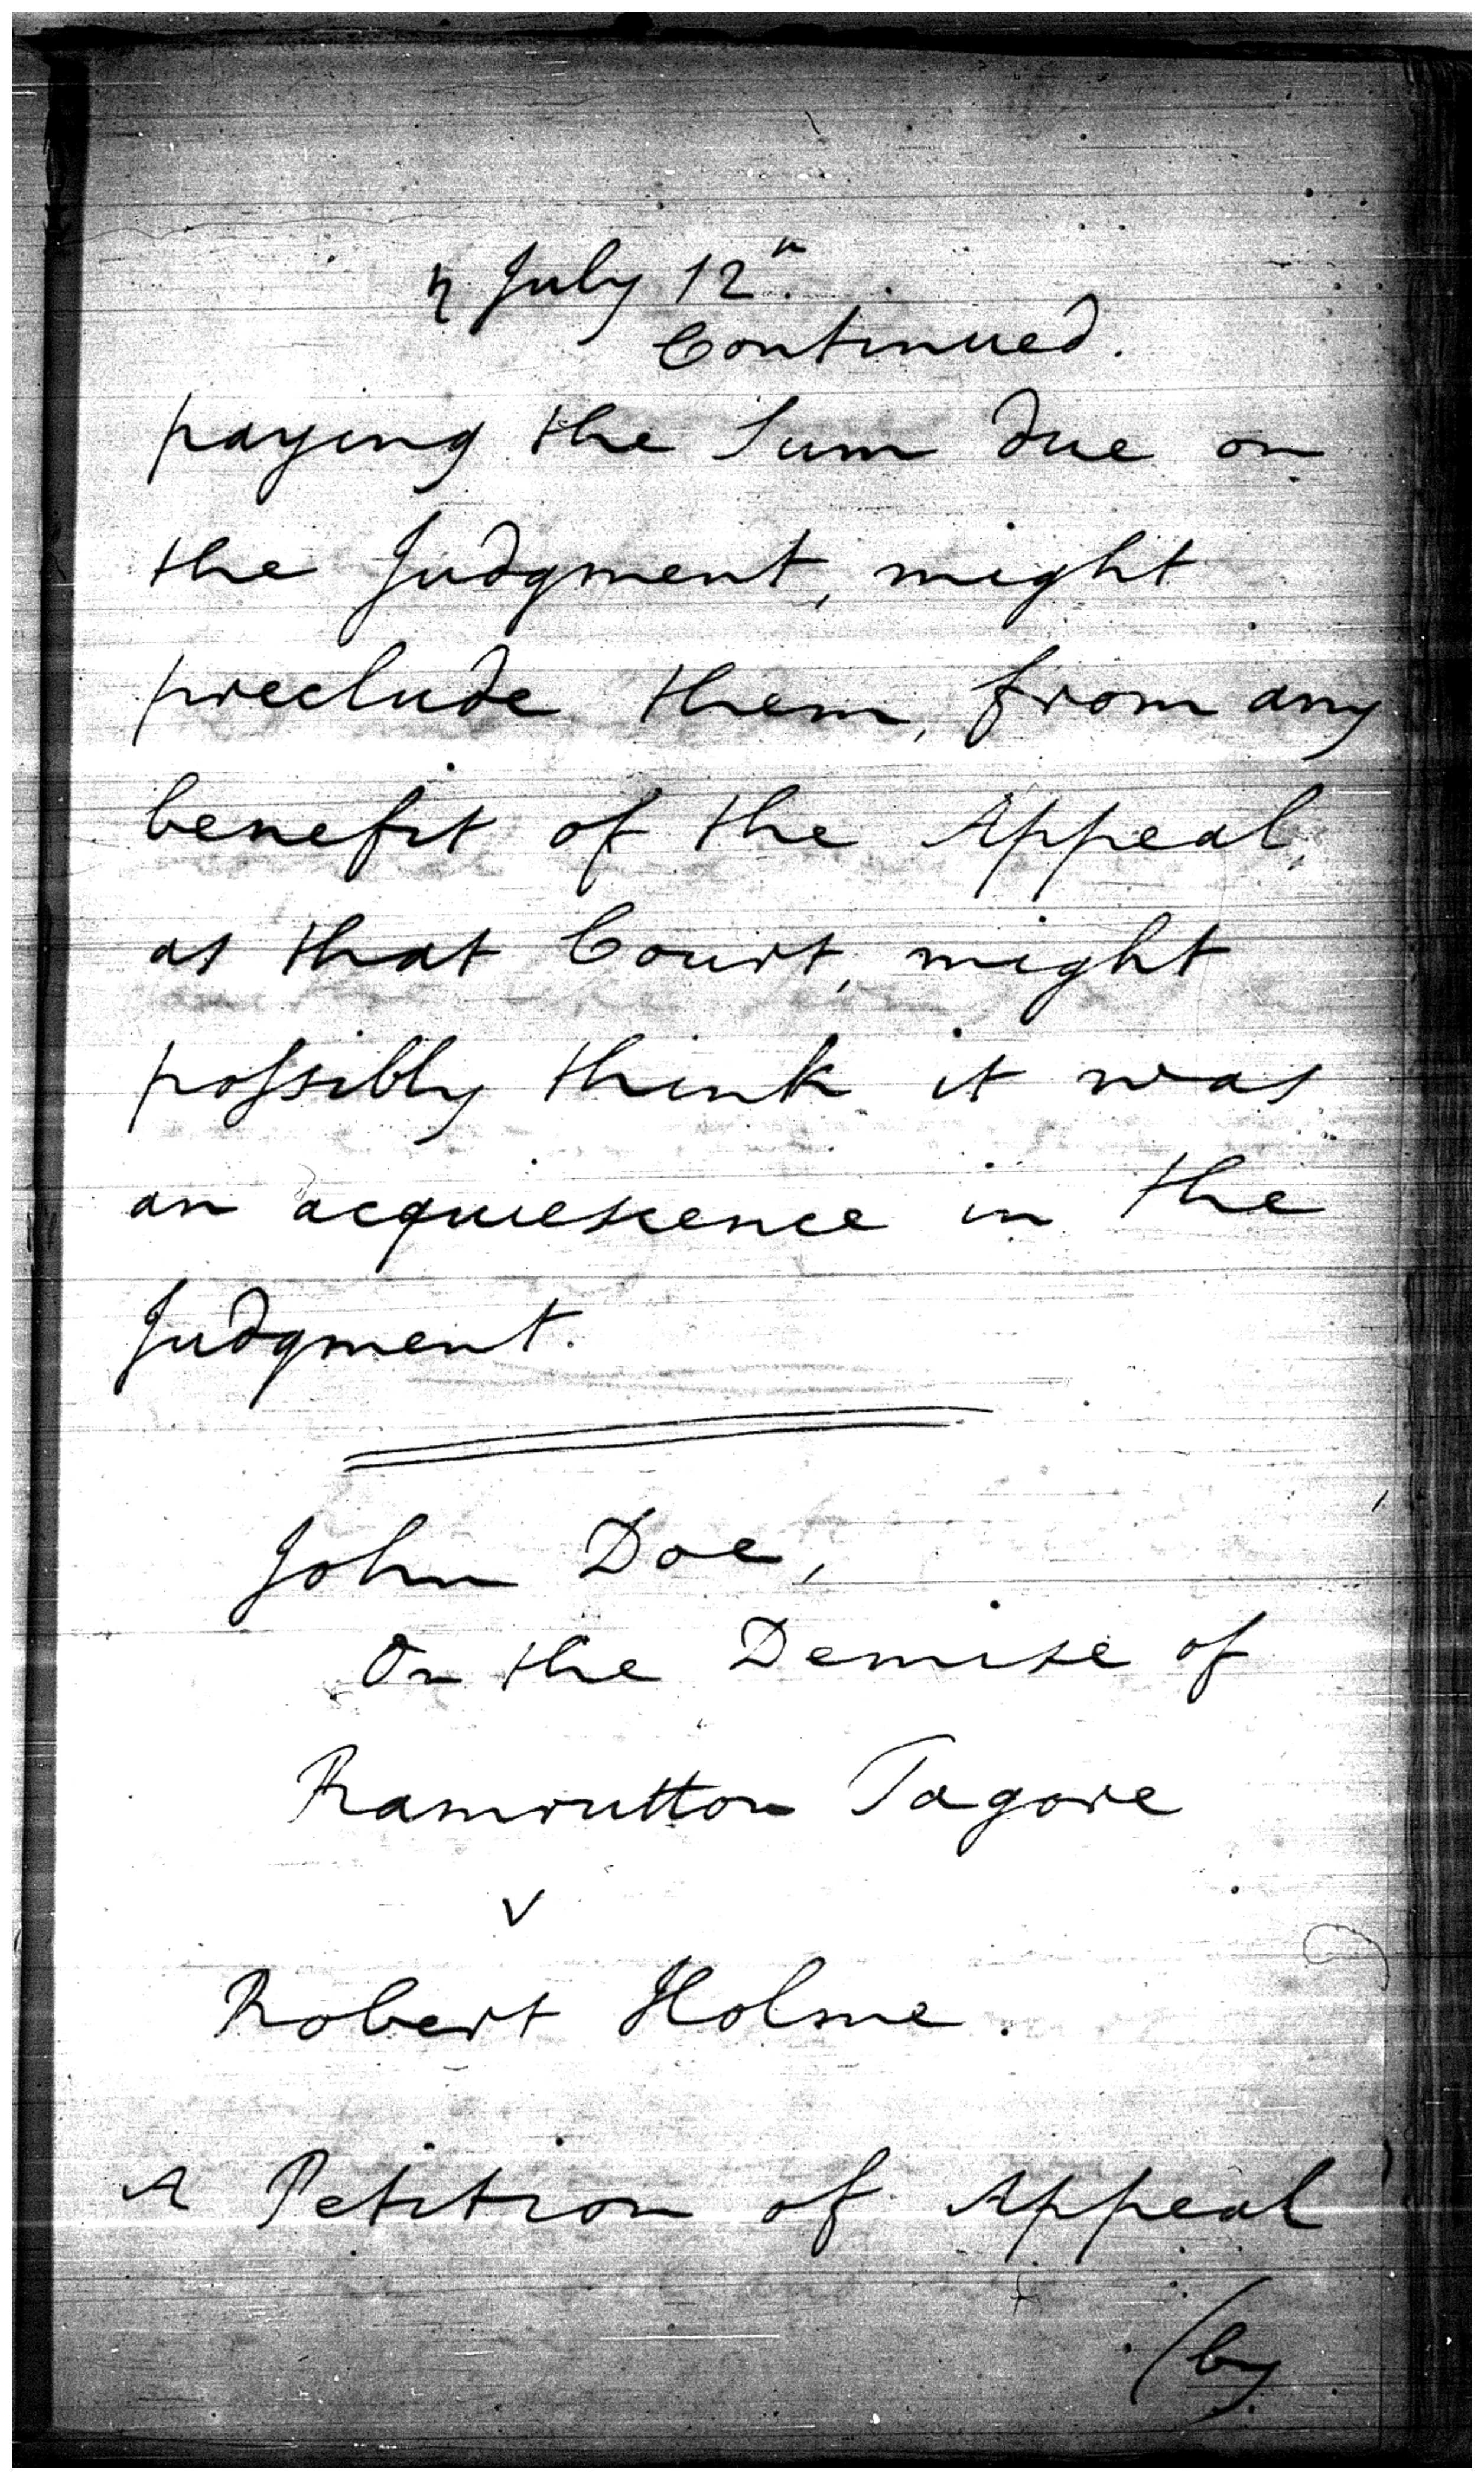 ♃ July 12th.
Continued.
paying the Sum due on
the Judgment, might
preclude them, from any
benefit of the Appeal,
as that Court, might
possibly think it was
an acquiescence in the
Judgment.
John Doe,
On the Demise of
Ramrutton Tagore
v
Robert Holme.
A Petition of Appeal
(by